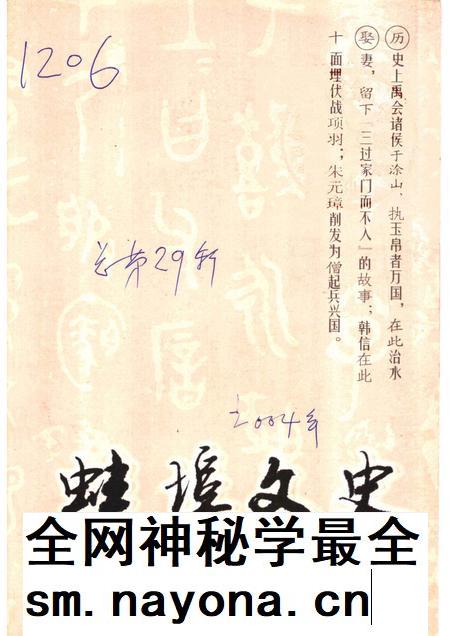 历史上禹会诸侯于涂山、执玉帛者万国，在此治水
娶妻，留下「三过家门而不入」的故事；韩信在此
十面埋伏战项羽；朱元璋削发为僧起兵兴国。
1206
总第29辑
2004年
蚌埠文史
全网神秘学最全
sm.nayona.cn